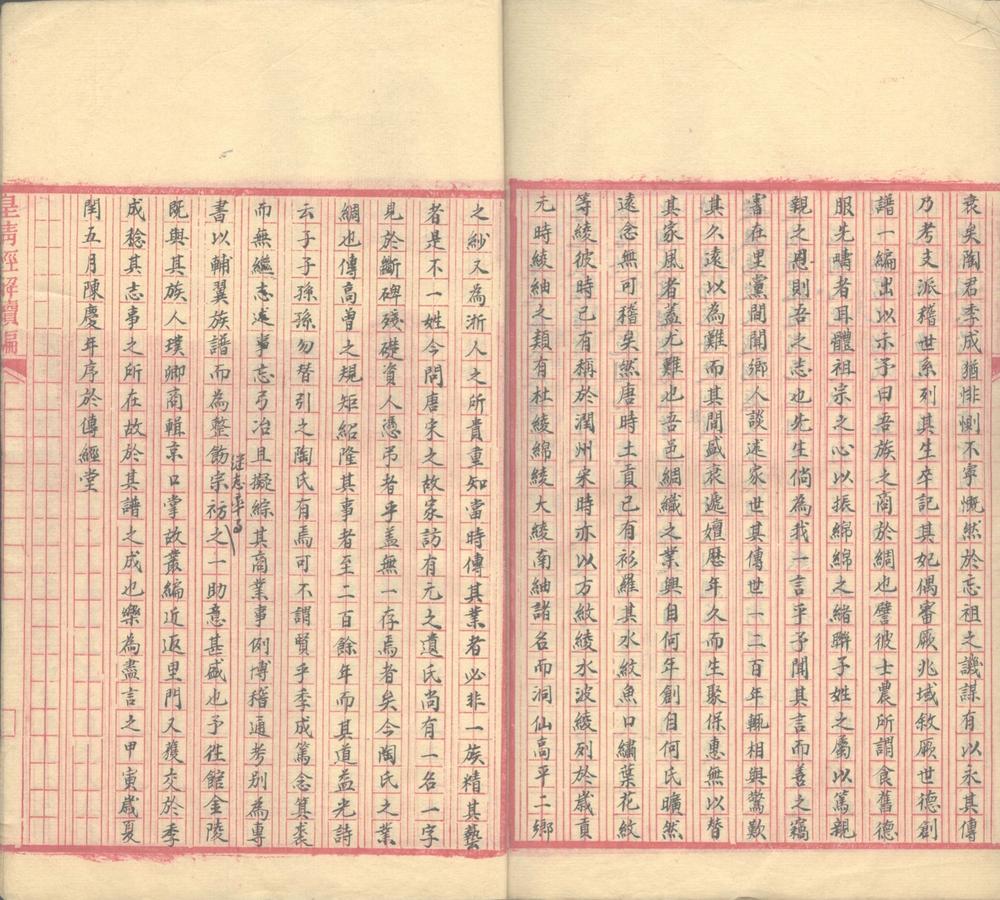 衰矣陶君季成猶悱惻不寧慨然於忘祖之譏謀有以永其傳
乃考支派稽世系列其生卒記其妃偶審厥兆域敘厥世德創
譜一編出以示予曰吾族之商於綢也譬彼士農所謂食舊德
服先疇者耳體祖宗之心以振綿綿之緒聯子姓之屬以篤親
親之恩則吾之志也先生倘為我一言乎予聞其言而善之竊
嘗在里黨間聞鄉人談述家世其傳世一二百年輒相與驚歎
其久遠以為難而其間盛衰遞嬗歷年久而生聚保惠無以替
其家風者蓋尤難也吾邑綢織之業興自何年創自何氏曠然
遠念無可稽矣然唐時土貢已有衫羅其水紋魚口繡葉花紋
等綾彼時已有稱於潤州宋時亦以方紋綾水波綾列於歲貢
元時綾紬之類有杜綾綿綾大綾南紬諸名而洞仙高平二鄉
之紗又為浙人之所貴重知當時傳其業者必非一族精其藝
者是不一姓今問唐宋之故家訪有元之遺氏尚有一名一字
見於斷碑殘礎資人憑弔者乎蓋無一存焉者矣今陶氏之業
綢也傳高曾之規矩紹隆其事者至二百餘年而其道益光詩
云子子孫孫勿替引之陶氏有焉可不謂賢乎季成篤念箕裘
而無繼志述事忘弓冶且擬綜其商業事例博稽通考別為專
書以輔翼族譜而為整飭宗祊之一助意甚盛也予往館金陵
既與其族人璞卿商輯京口掌故叢編近返里門又獲交於季
成稔其志事之所在故於其譜之成也樂為盡言之甲寅歲夏
閏五月陳慶年序於傳經堂
皇清經解續編